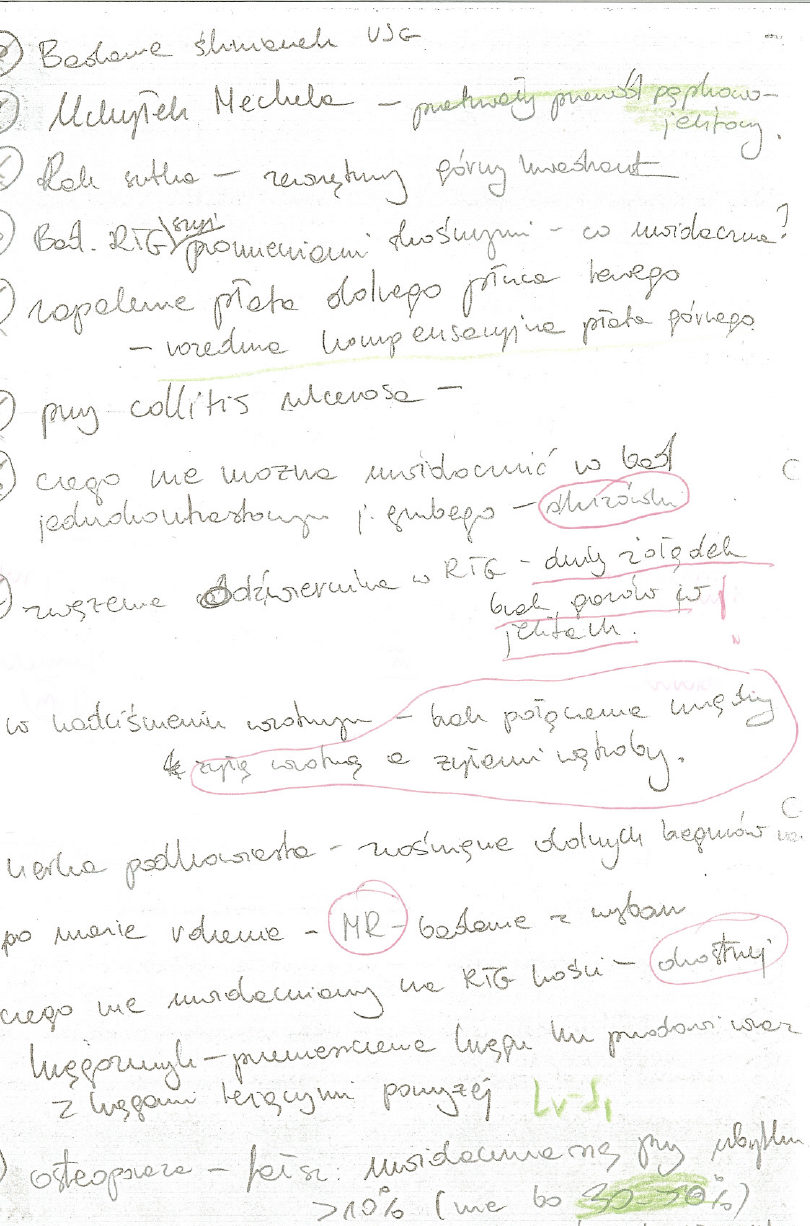 Badanie ślinianek USG
Uchyłek Meckela – przetrwały przewód pępkowo-
jelitowy.
Rak sutka – zewnętrzny górny kwadrant
Bad. RTG szyi promieniami skośnymi – co uwidacznia?
zapalenie płata dolnego płuca lewego
– rozedma kompensacyjna płata górnego
przy collitis ulcerosa –
czego nie można uwidocznić w bad
jednokontrastowym j. grubego –
zwężenie Odźwiernika w RTG – duży żołądek
brak gazów w !
jelitach.
w nadciśnieniu wrotnym – brak połączenia między
żyłą wrotną a żyłami wątroby.
nerka podkowiasta – zrośnięcie dolnych biegunów
po urazie rdzenia – MR – badanie z wyboru
czego nie uwidaczniamy na RTG kości – okostnej
kręgozmyk – przemieszczenie kręgu ku przodowi wraz
z kręgami leżącymi powyżej LV-S1
osteoporoza – fałsz: uwidacznia się przy ubytku
>10% (nie bo 30 %)